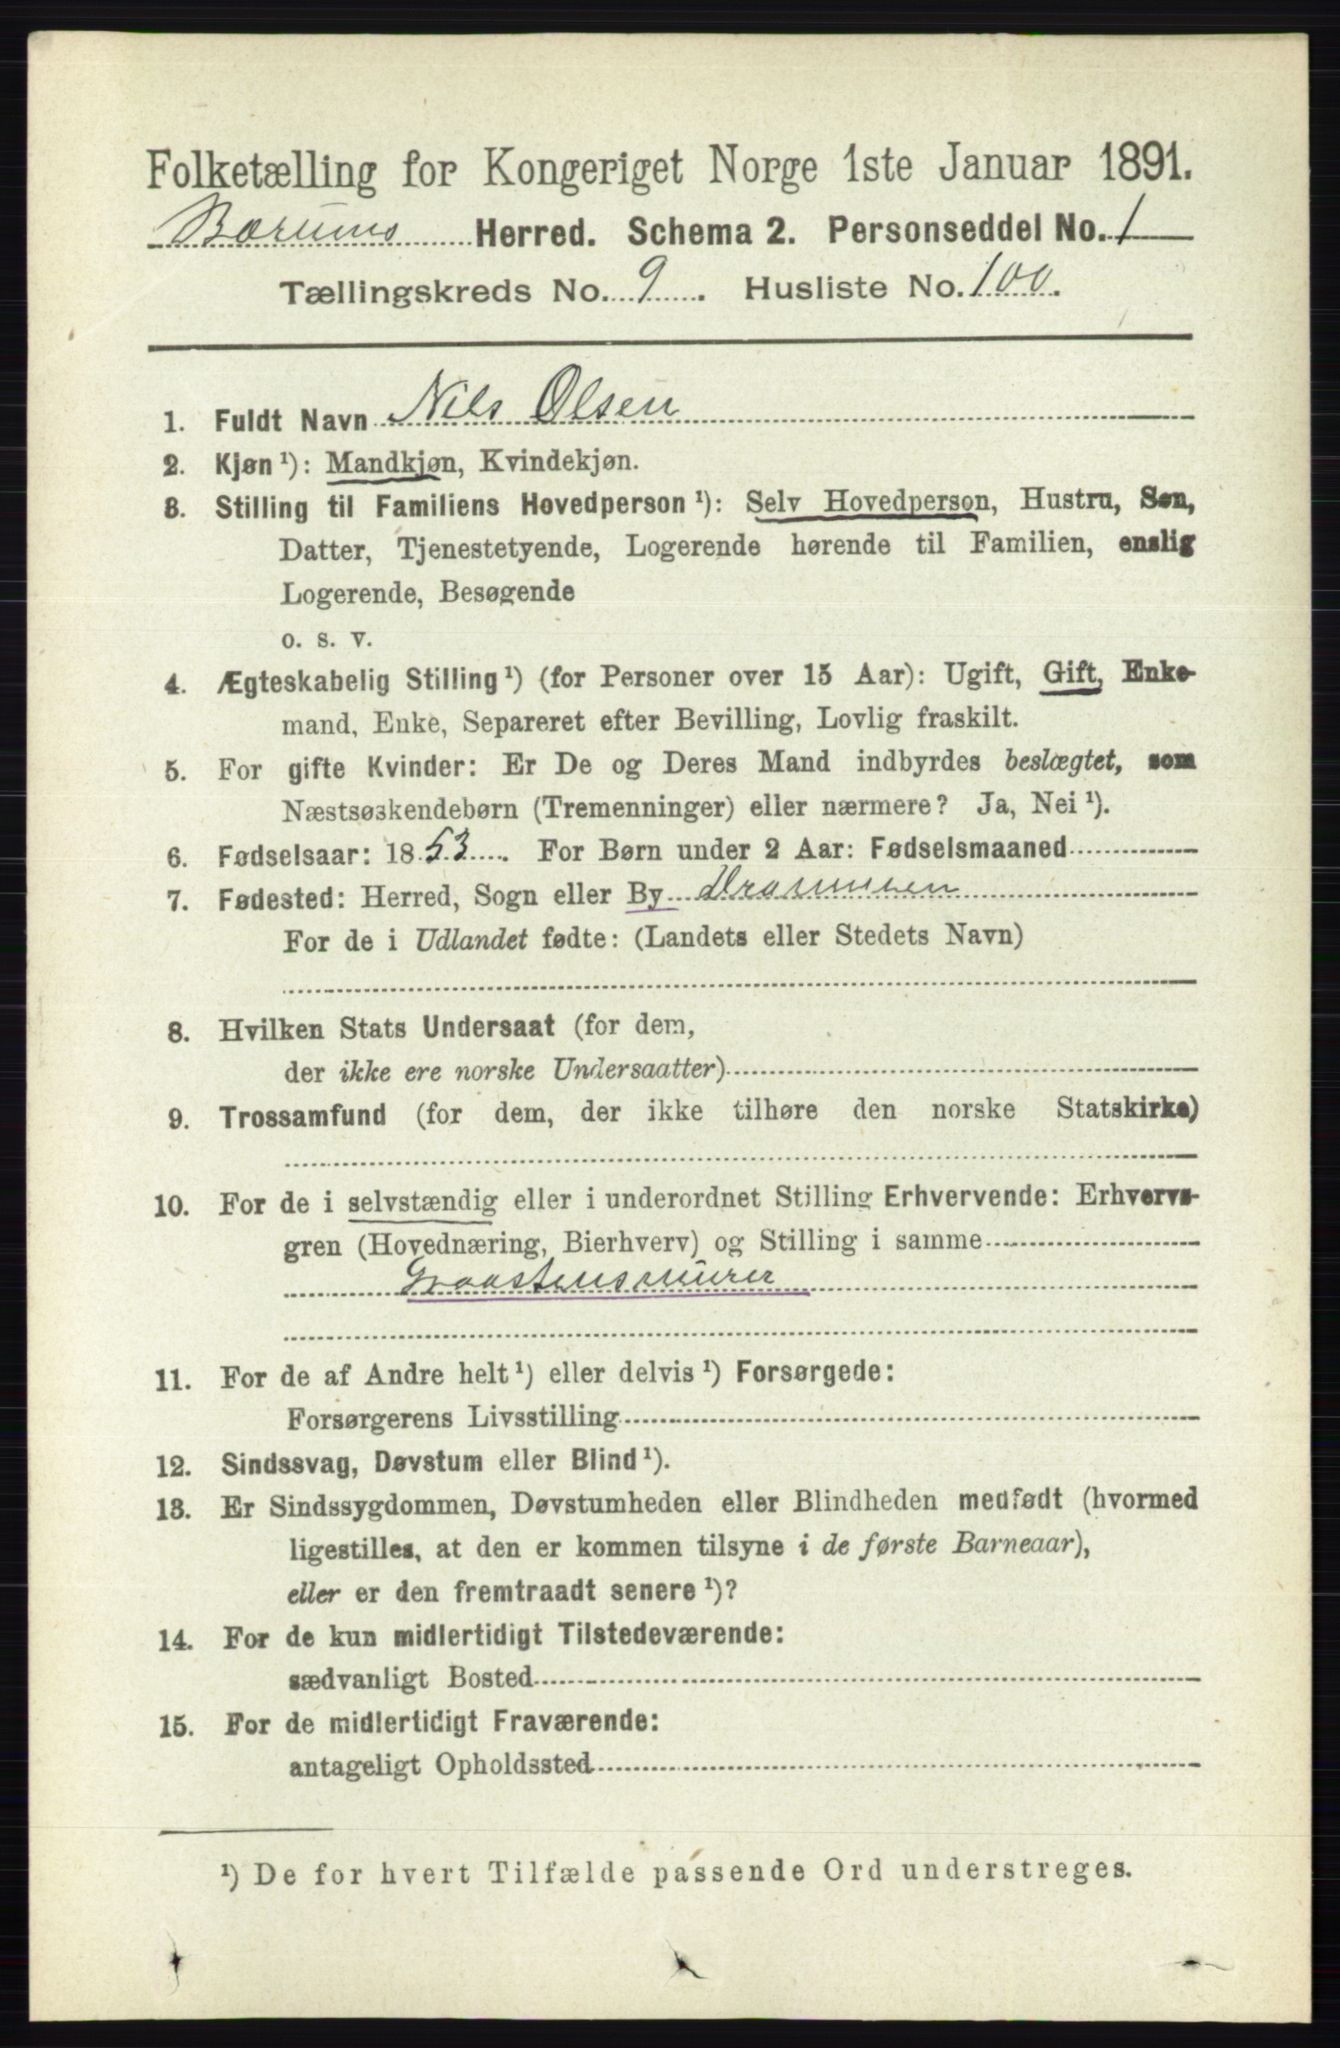 Folketælling for Kongeriget Norge 1ste Januar 1891.
Bærums Herred. Schema 2. Personseddel No. 1
Tællingskreds No. 9. Husliste No. 100.
1. Fuldt Navn Nils Olsen
2. Kjøn ¹): Mandkjøn, Kvindekjøn.
3. Stilling til Familiens Hovedperson ¹): Selv Hovedperson, Hustru, Søn,
Datter, Tjenestetyende, Logerende hørende til Familien, enslig
Logerende, Besøgende
o. s. v.
4. Ægteskabelig Stilling ¹) (for Personer over 15 Aar): Ugift, Gift, Enke-
mand, Enke, Separeret efter Bevilling, Lovlig fraskilt.
5. For gifte Kvinder: Er De og Deres Mand indbyrdes beslægtet, som
Næstsøskendebørn (Tremenninger) eller nærmere? Ja, Nei ¹).
6. Fødselsaar: 1853. For Børn under 2 Aar: Fødselsmaaned
7. Fødested: Herred, Sogn eller By Drammen
For de i Udlandet fødte: (Landets eller Stedets Navn)
8. Hvilken Stats Undersaat (for dem,
der ikke ere norske Undersaatter)
9. Trossamfund (for dem, der ikke tilhøre den norske Statskirke)
10. For de i selvstændig eller i underordnet Stilling Erhvervende: Erhvervs-
gren (Hovednæring, Bierhverv) og Stilling i samme
Graastensmurer
11. For de af Andre helt ¹) eller delvis ¹) Forsørgede:
Forsørgerens Livsstilling
12. Sindssvag, Døvstum eller Blind ¹).
13. Er Sindssygdommen, Døvstumheden eller Blindheden medfødt (hvormed
ligestilles, at den er kommen tilsyne i de første Barneaar),
eller er den fremtraadt senere ¹)?
14. For de kun midlertidigt Tilstedeværende:
sædvanligt Bosted
15. For de midlertidigt Fraværende:
antageligt Opholdssted
¹) De for hvert Tilfælde passende Ord understreges.